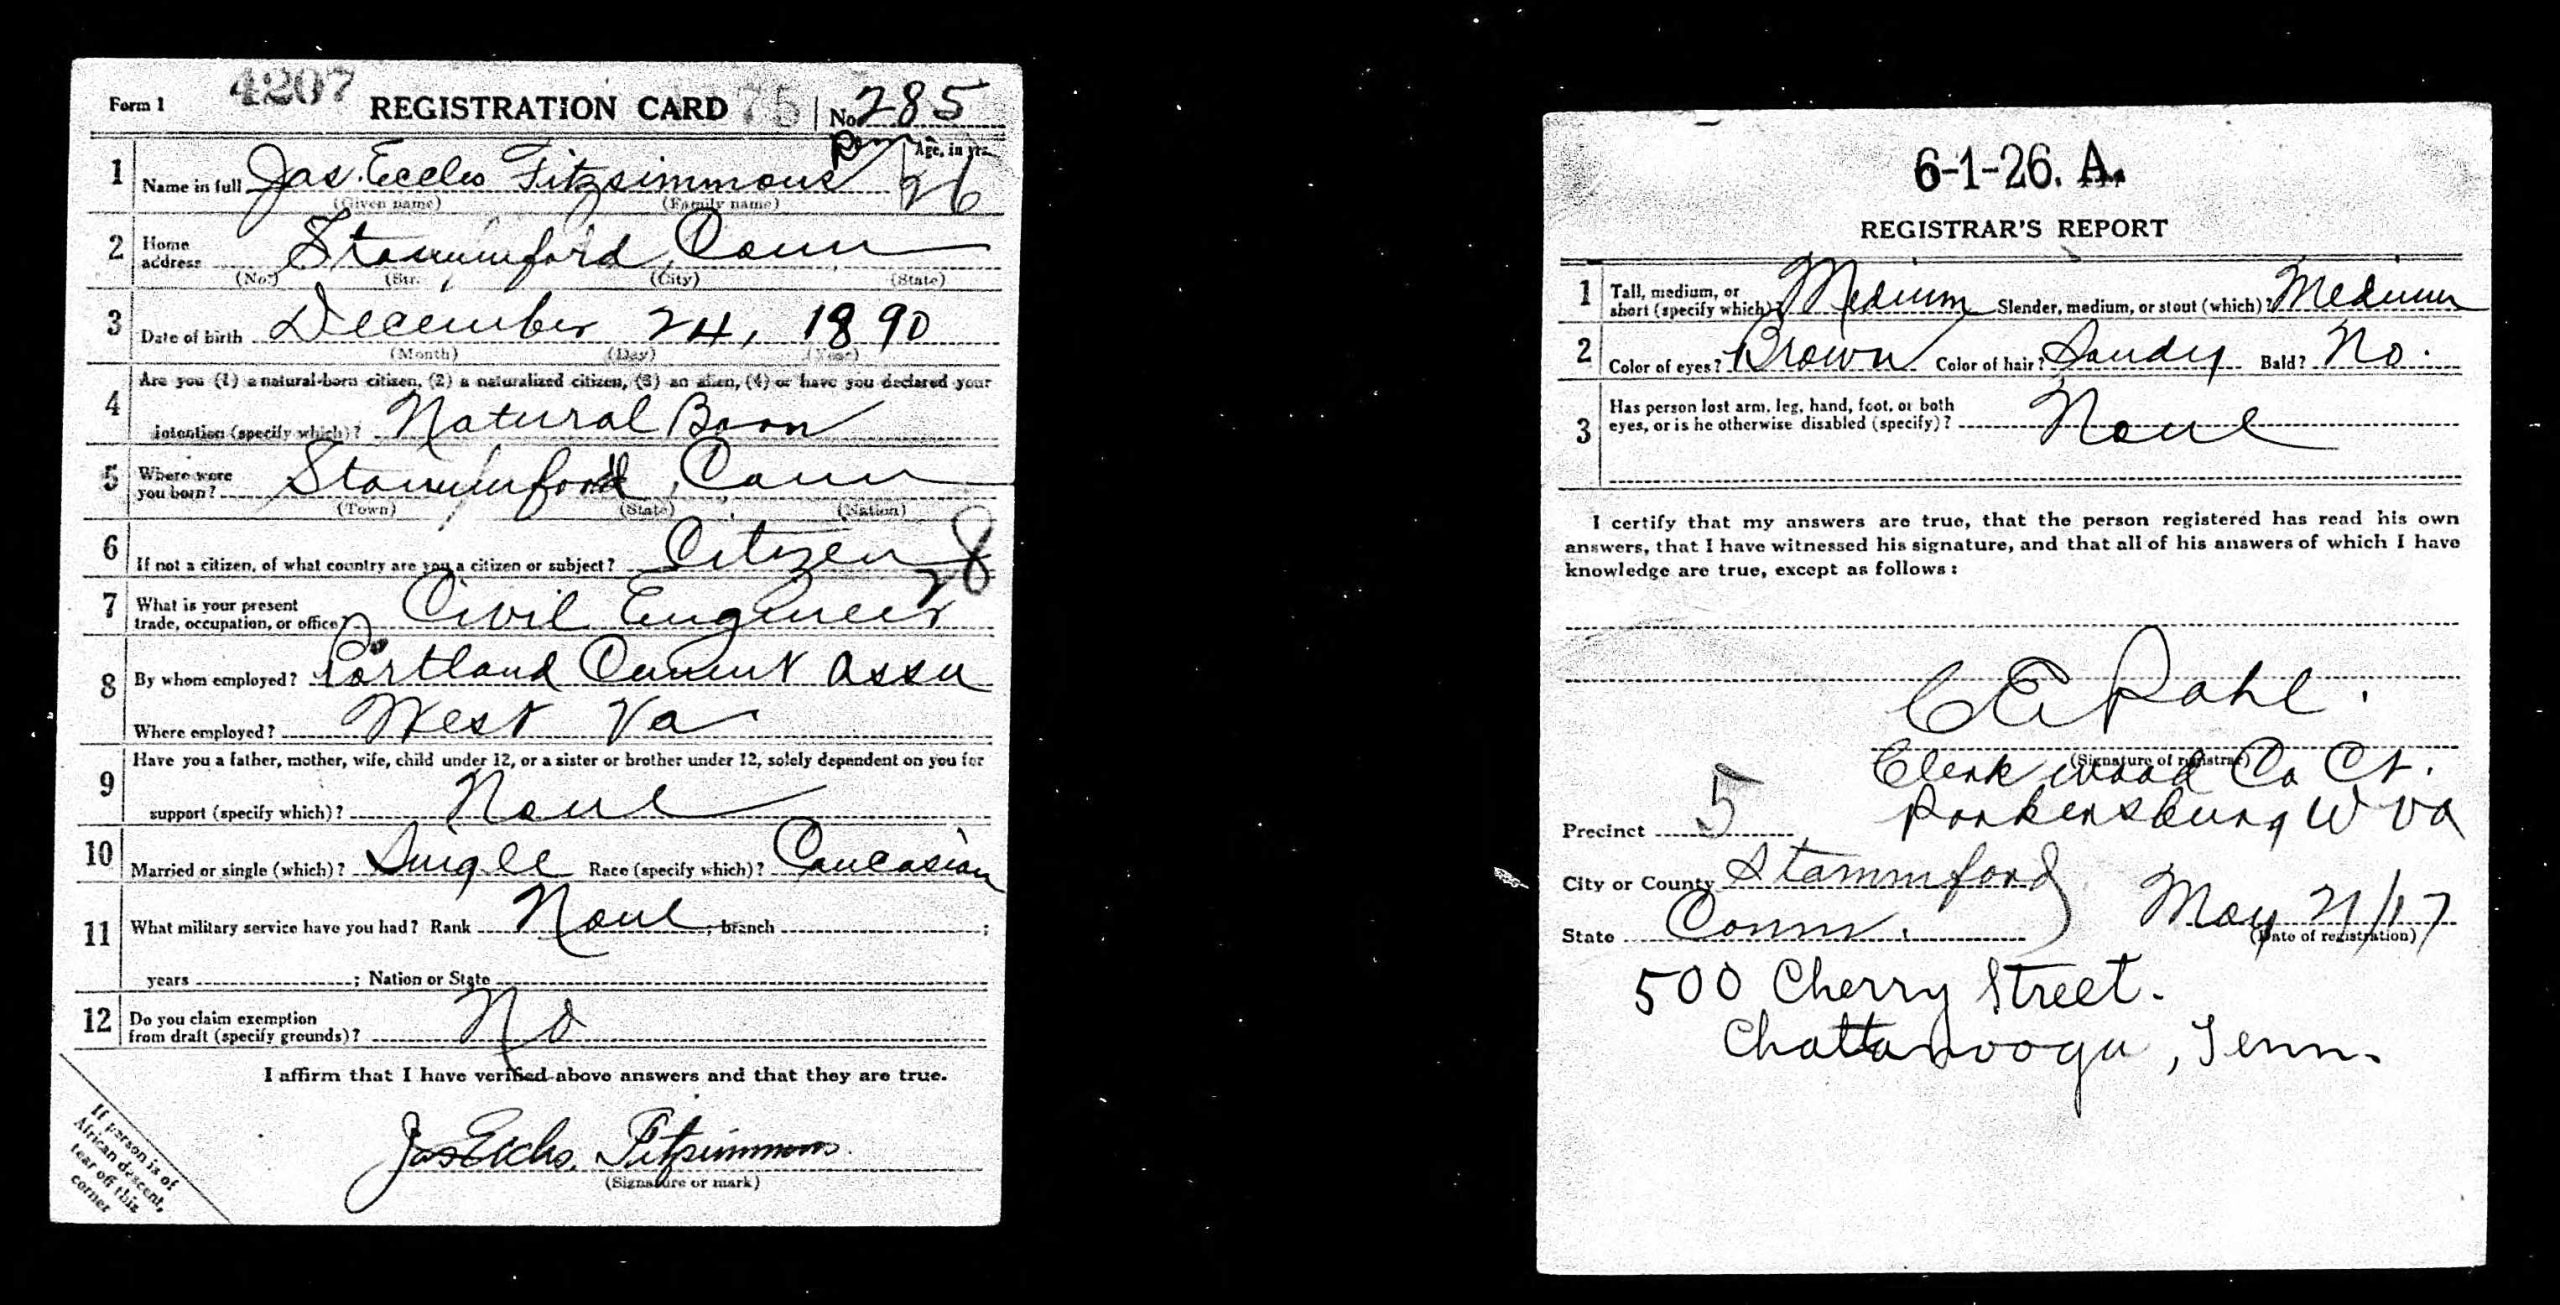 Form 1 4207 REGISTRATION CARD 75 No. 285
1 Name in full Jas. Eccles Fitzsimmons Age, in yrs. 26
(Given name) (Family name)
2 Home address Stammford, Conn
(No.) (Str. (City) (State)
3 Date of birth December 24, 1890
(Month) (Day) (Year)
4 Are you (1) a natural-born citizen, (2) a naturalized citizen, (3) an alien, (4) or have you declared your
intention (specify which)? Natural Born
5 Where were you born? Stammford, Conn
(Town) (State) (Nation)
6 If not a citizen, of what country are you a citizen or subject? Citizen
28
7 What is your present trade, occupation, or office? Civil Engineer
8 By whom employed? Portland Cement Assn
Where employed? West Va
9 Have you a father, mother, wife, child under 12, or a sister or brother under 12, solely dependent on you for
support (specify which)? None
10 Married or single (which)? Single Race (specify which)? Caucasian
11 What military service have you had? Rank None ; branch ;
years ; Nation or State
12 Do you claim exemption from draft (specify grounds)? No
I affirm that I have verified above answers and that they are true.
Jas Eccles Fitzsimmons
(Signature or mark)
If person is of
African descent,
tear off this
corner
6-1-26. A.
REGISTRAR'S REPORT
1 Tall, medium, or short (specify which)? Medium Slender, medium, or stout (which)? Medium
2 Color of eyes? Brown Color of hair? Sandy Bald? No.
3 Has person lost arm, leg, hand, foot, or both
eyes, or is he otherwise disabled (specify)? None
I certify that my answers are true, that the person registered has read his own
answers, that I have witnessed his signature, and that all of his answers of which I have
knowledge are true, except as follows:
C E Pahl.
(Signature of registrar)
Clerk Wood Co Ct.
Parkersburg W Va
Precinct 5
City or County Stammford
State Conn. May 21/17
(Date of registration)
500 Cherry Street.
Chattanooga, Tenn.